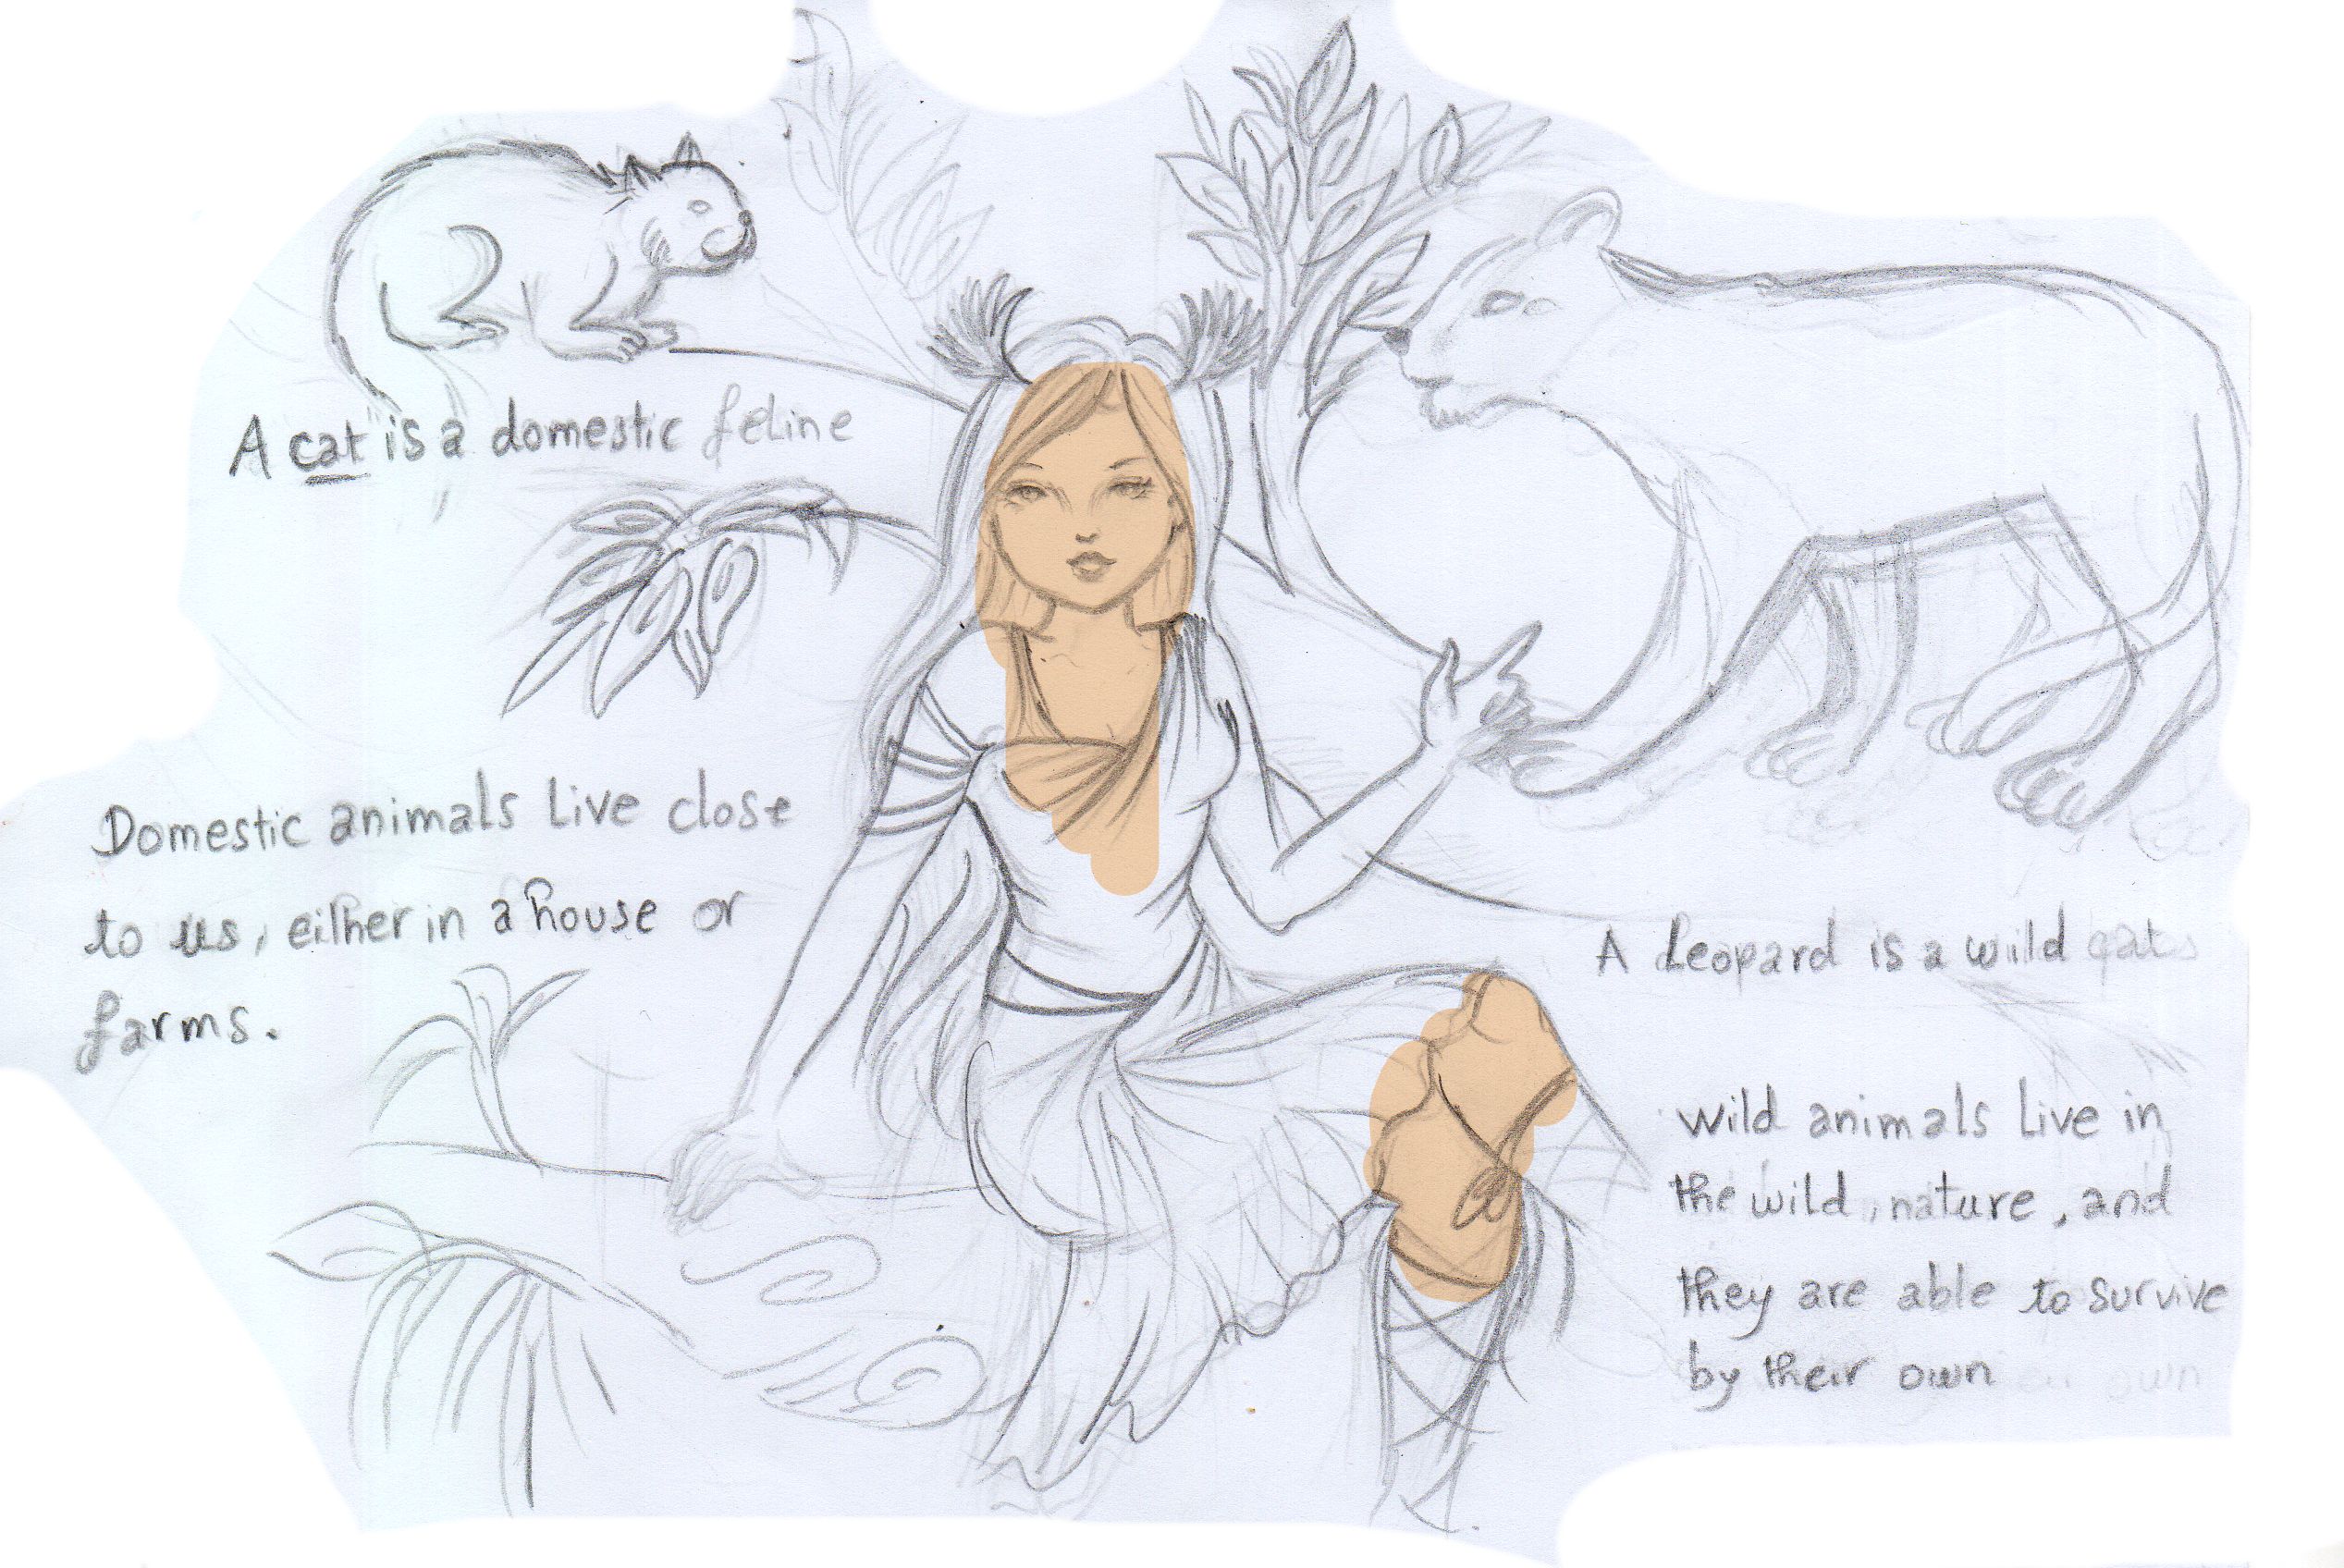 A cat is a domestic feline
Domestic animals live close
to us, either in a house or
farms.
A Leopard is a wild cat
wild animals live in
the wild, nature, and
they are able to survive
by their own
own